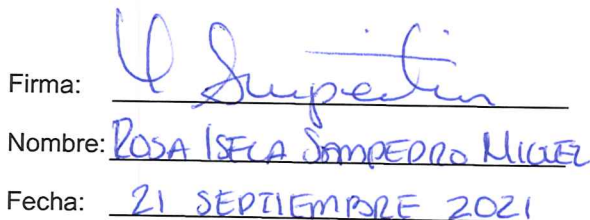 Firma:
Nombre: ROSA ISELA SAMPEDRO MIGUEL
Fecha: 21 SEPTIEMBRE 2021